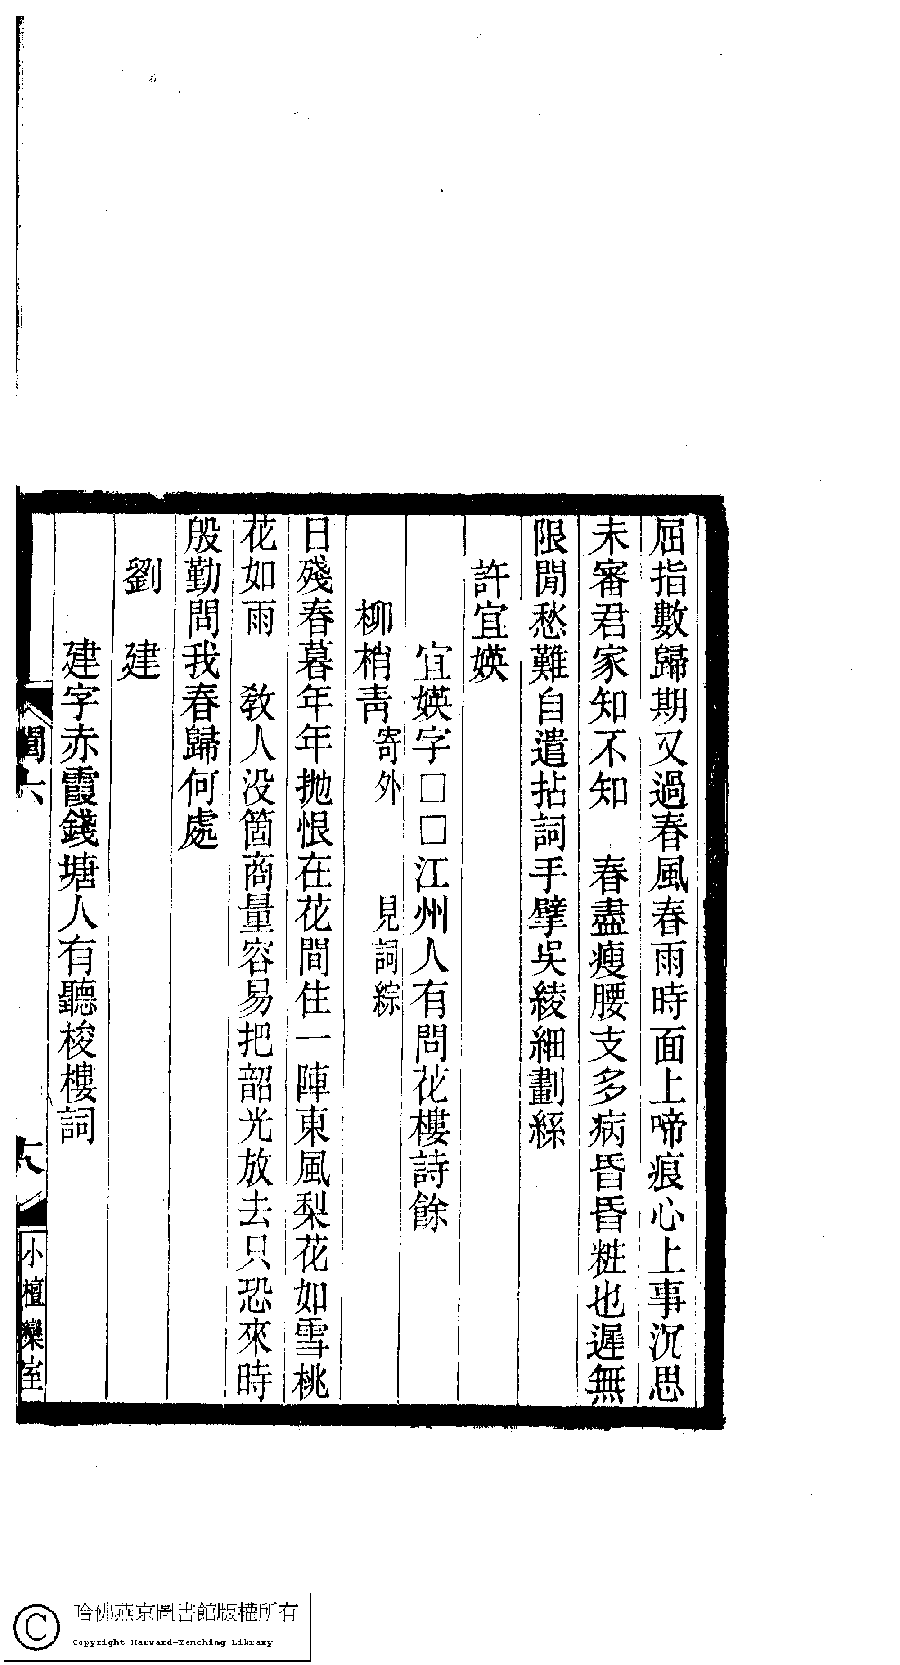 屈指數歸期又過春風春雨時面上啼痕心上事沉思
未審君家知不知　春盡瘦腰支多病昏昏粧也遲無
限閒愁難自遣拈詞手擘吳綾細劃絲
許宜媖
宜媖字□□江州人有問花樓詩餘
柳梢靑 寄外　見詞綜
日殘春暮年年拋恨在花間住一陣東風梨花如雪桃
花如雨　敎人没箇商量容易把韶光放去只恐來時
殷勤問我春歸何處
劉　建
建字赤霞錢塘人有聽梭樓詞
閨六
六
小檀欒室
哈佛燕京圖書館版權所有
Copyright Harvard-Yenching Library